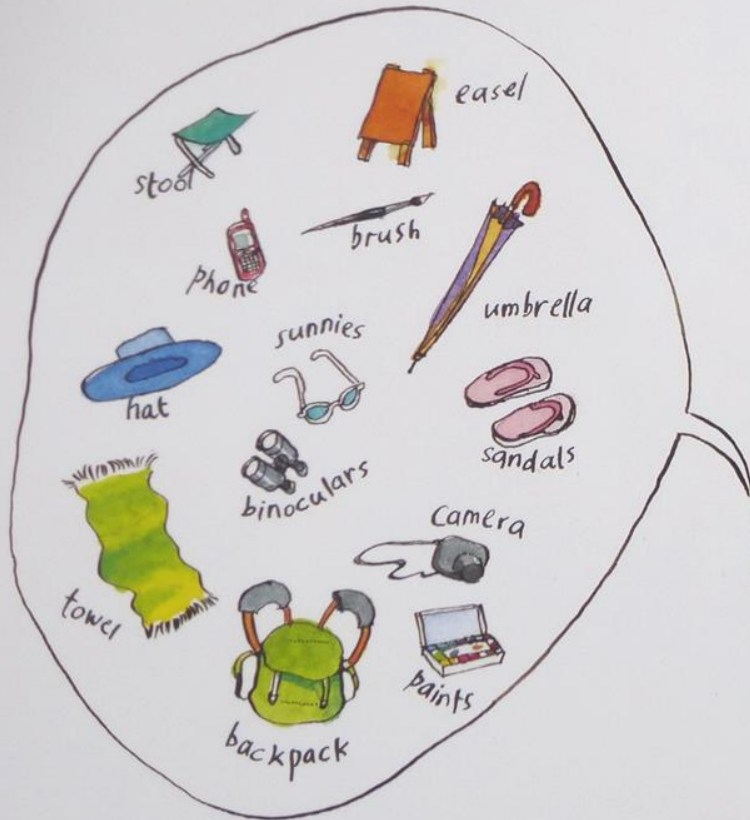 easel
stool
brush
phone
umbrella
sunnies
hat
sandals
binoculars
camera
towel
paints
backpack